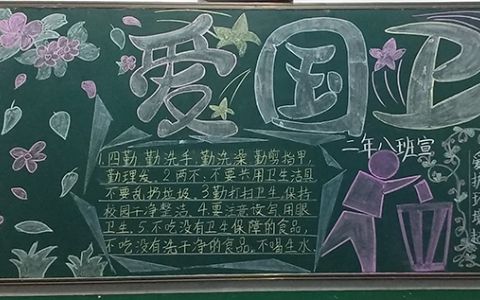 爱国卫
二年八班宣
1.四勤 勤洗手,勤洗澡 勤剪指甲,
勤理发。2.两不,不要共用卫生洁具
不要乱扔垃圾。3.勤打扫卫生,保持
校园干净整洁。4.要注意读写,用眼
卫生。5.不吃没有卫生保障的食品,
不吃没有洗干净的食品,不喝生水.